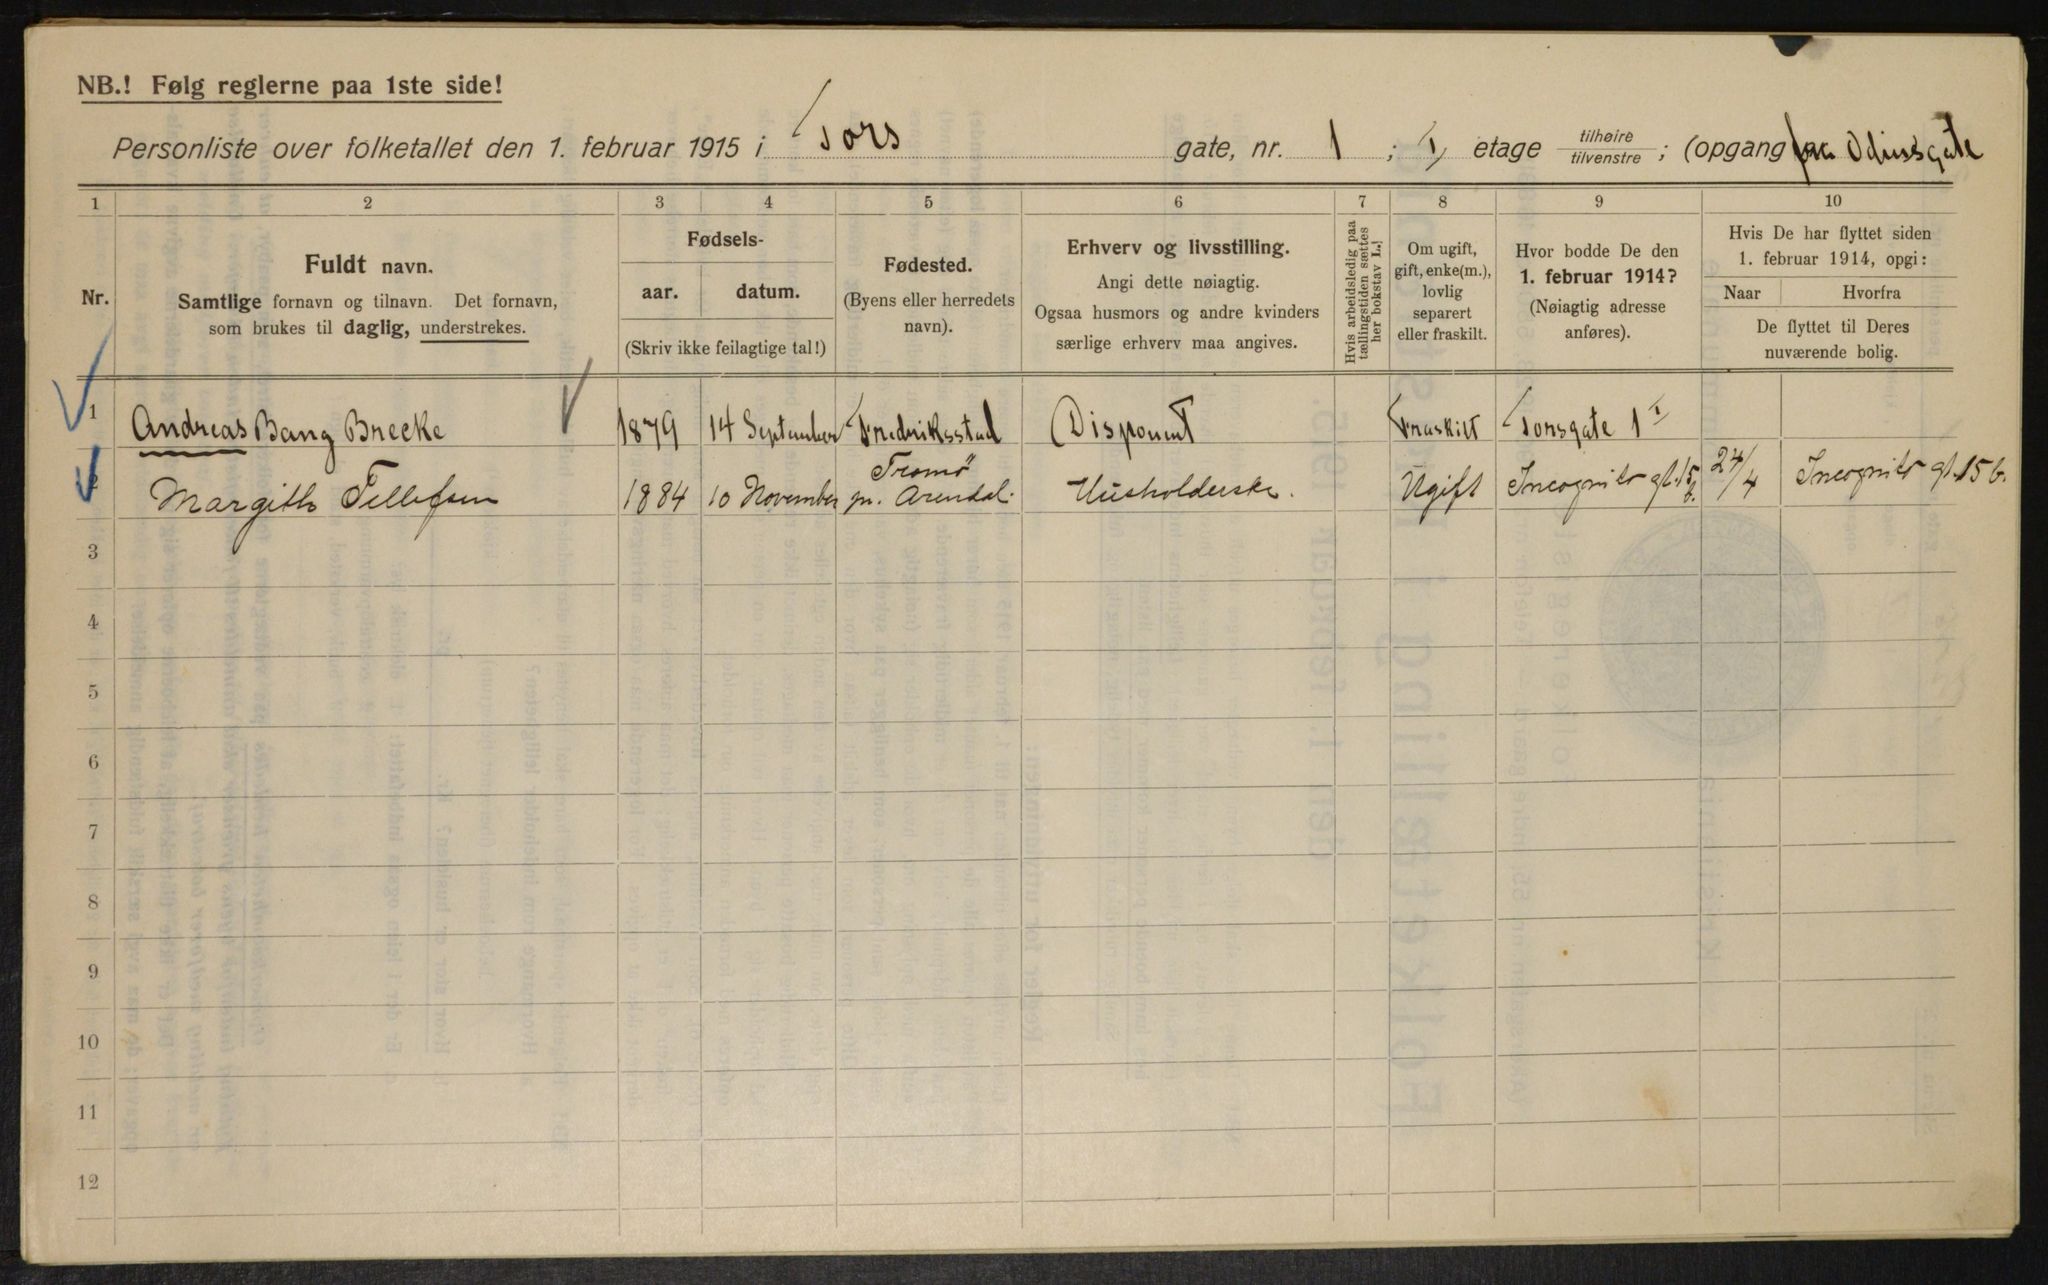 NB.! Følg reglerne paa 1ste side!
Personliste over folketallet den 1. februar 1915 i Tors gate, nr. 1 ; I etage tilhøire/tilvenstre ; (opgang fra Odinsgate
1 2 3 4 5 6 7 8 9 10
Nr.
Fuldt navn.
Samtlige fornavn og tilnavn. Det fornavn,
som brukes til daglig, understrekes.
Fødsels-
aar. datum.
(Skriv ikke feilagtige tal!)
Fødested.
(Byens eller herredets
navn).
Erhverv og livsstilling.
Angi dette nøiagtig.
Ogsaa husmors og andre kvinders
særlige erhverv maa angives.
Hvis arbeidsledig paa
tællingstiden sættes
her bokstav L.
Om ugift,
gift, enke(m.),
lovlig
separert
eller fraskilt.
Hvor bodde De den
1. februar 1914?
(Nøiagtig adresse
anføres).
Hvis De har flyttet siden
1. februar 1914, opgi:
Naar Hvorfra
De flyttet til Deres
nuværende bolig.
1 Andreas Bang Brecke 1879 14 September Fredriksstad Disponent Fraskilt Torsgate 1 I
2 Margith Tellefsen 1884 10 November Tromø pr. Arendal. Husholderske. Ugift Incognito gt. 15 b. 24/4 Incognito gt. 15 b.
3
4
5
6
7
8
9
10
11
12